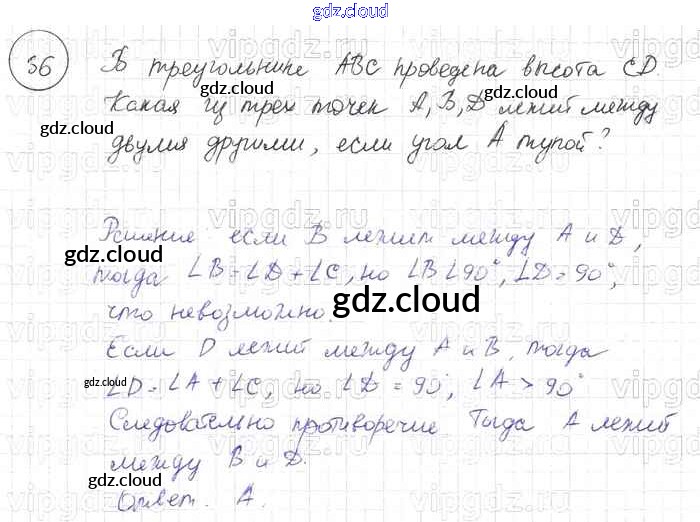 gdz.cloud
36 В треугольнике ABC проведена высота CD.
Какая из трех точек A, B, D лежит между
gdz.cloud gdz.cloud
двумя другими, если угол A тупой?
gdz.cloud
Решение: если B лежит между A и D,
gdz.cloud
тогда ∠B = ∠D + ∠C, но ∠B ∠90°, ∠D = 90°,
gdz.cloud
что невозможно.
Если D лежит между A и B, тогда
gdz.cloud
∠D = ∠A + ∠C, но ∠D = 90°, ∠A > 90°
Следовательно противоречие. Тогда A лежит
между B и D.
gdz.cloud gdz.cloud
Ответ. A.